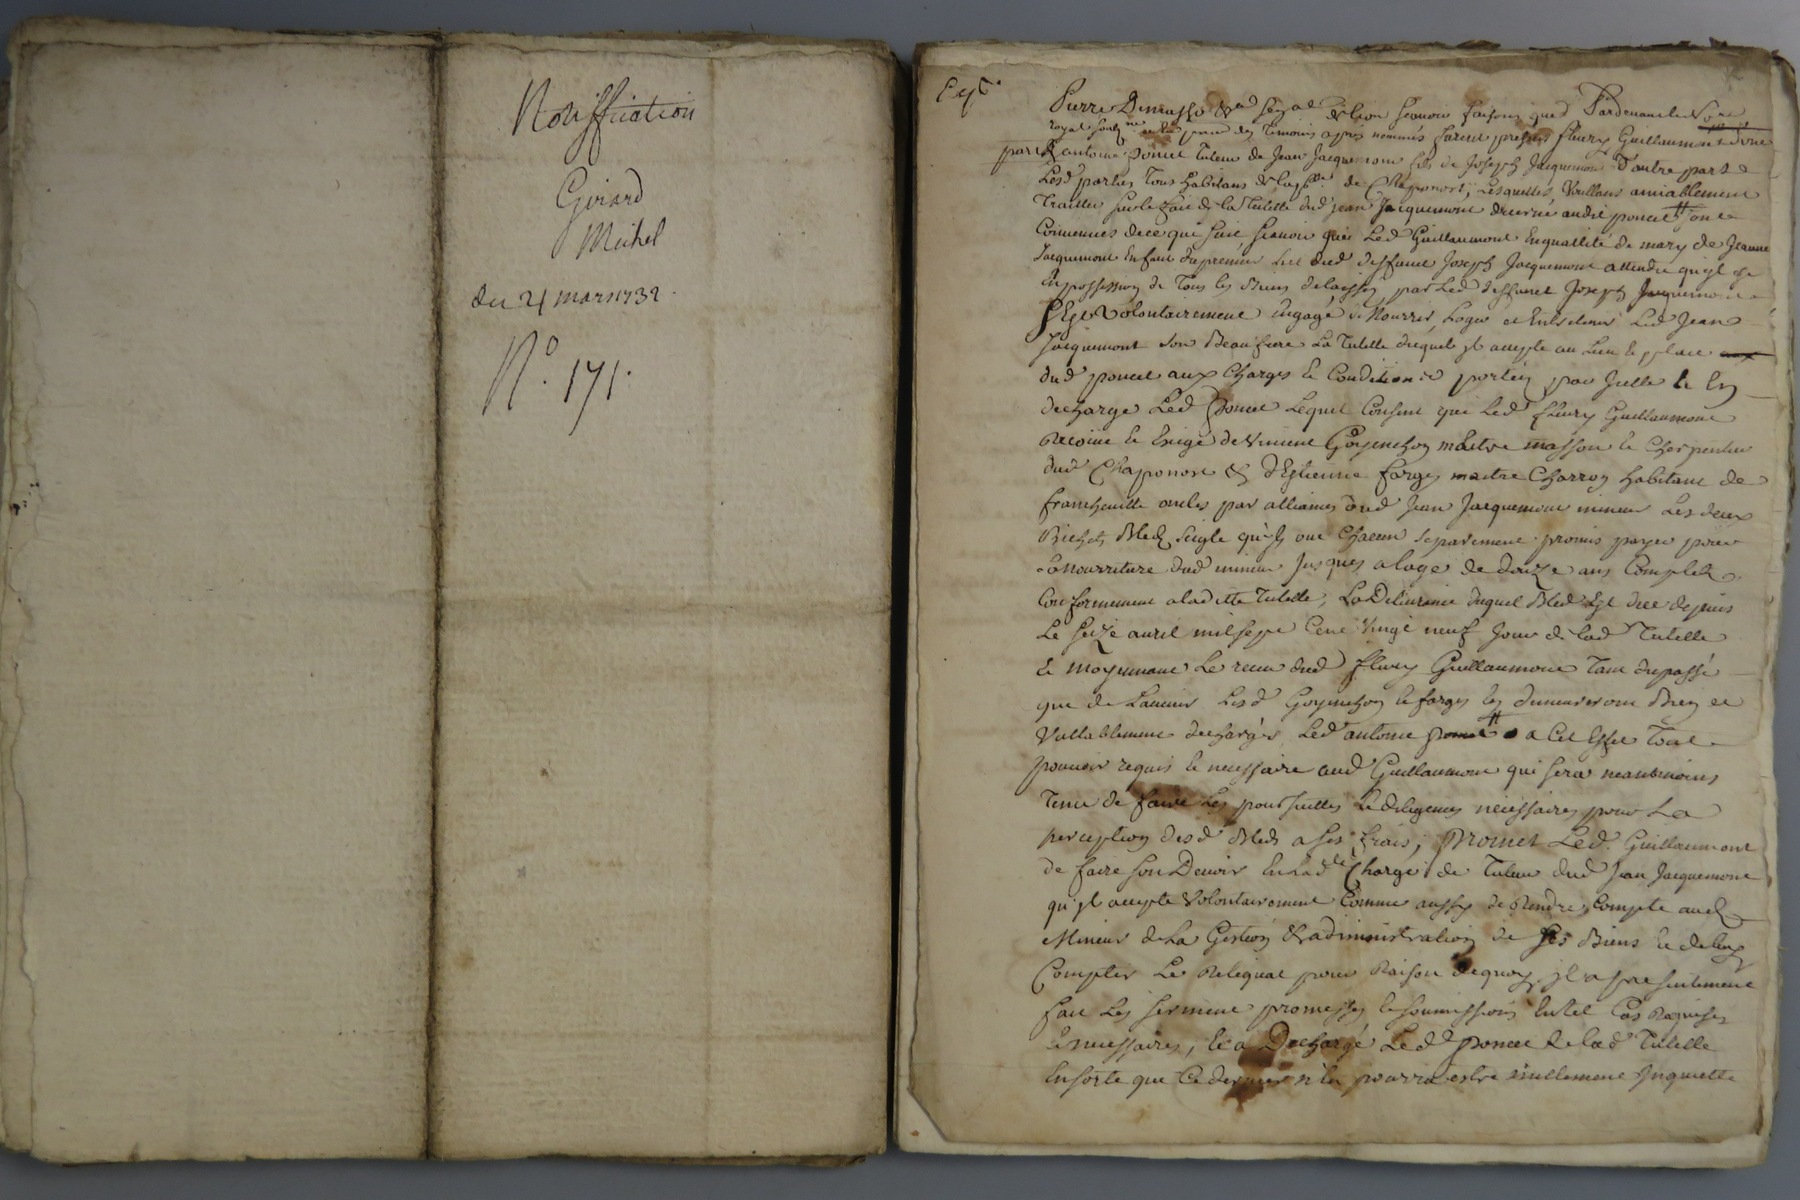 Notiffication
Girard
Michel
du 21 mars 1732.
N.º 171.
Exp.
Pierre sçavoir faisons que Pardevant le
royal en la des temoins apres nommés furent presens fleury Guillaumont d'une
part & antoine Poncet Tuteur de Jean Jacquemont fils de Joseph Jacquemont D'autre part
Lesd parties Tous habitans de de Chaponost, Lesquelles Voullans amiablement
Traitter sur le fait de la Tutelle dud jean Jacquemont decernée audit poncet # ont
Convenues de ce qui suit scavoir que Led Guillaumont En quallité de mary de Jeanne
Jacquemont Enfant du premier lict dud deffunct Joseph Jacquemont attendu qu'jl est
En possession de Tous les Biens delaissés par Led deffunct Joseph Jacquemont
s'Est Volontairement Engagé de Nourrir, Loger et Entretenir Led Jean
Jacquemont son Beau frere La Tutelle duquel jl accepte au Lieu & place
dud poncet aux Charges & Conditions portéez par Jcelle & En
decharge Led Poncet Lequel Consent que Led fleury Guillaumont
Recoive & Exige de Vincent Goyenchon maitre masson & Charpentier
dud Chaponost & d'Estienne farges maitre Charron habitant de
francheville oncles par alliances dud Jean Jacquemont mineur Les deux
Bichets Bled seigle qu'jls ont Chacun separement promis payer pour
la Nourriture dud mineur Jusques a lage de douze ans Complets
Conformement a laditte Tutelle, La Delivrance duquel Bled Est due depuis
Le seize avril mil sept Cent Vingt neuf Jour de lad Tutelle
& moyennant Le receu dud fleury Guillaumont Tant du passé
que de Lavenir Lesd Goyenchon & farges En demeureront Bien et
Vallablement dechargés Led antoine poncet # a Cet Effet Tout
pouvoir requis & necessaire aud Guillaumont qui sera neantmoins
Tenu de faire Les poursuittes & diligences nécéssaires pour La
perception desd Bleds a ses frais, Promet Led. Guillaumont
de faire son Devoir En lad Charge de Tuteur dud Jean Jacquemont
qu'jl accepte Volontairement Comme aussy de Rendre Compte aud
Mineur de La Gestion & administration de ses Biens & de luy
Compter Le Reliquat pour Raison dequoy jl a presentement
fait Les serment promesses & soumissions En tel Cas Requises
& necessaires, & a Dechargé Led Poncet de lad Tutelle
En sorte que Ce dernier n'En pourra estre nullement Jnquietté